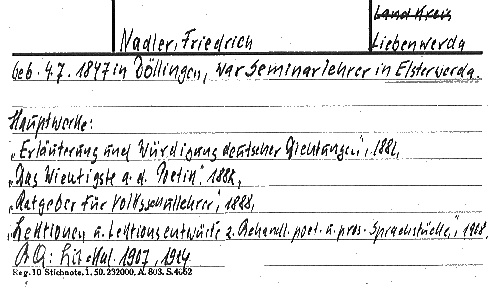 Land Kreis
Nadler, Friedrich Liebenwerda
geb. 4.7. 1847 in Döllingen, war Seminarlehrer in Elsterwerda.
Hauptwerke:
„Erläuterung und Würdigung deutscher Dichtungen", 1882,
„Das Wichtigste a. d. Poetik", 1882,
„Ratgeber für Volksschullehrer", 1888,
„Lektionen u. Lektionsentwürfe z. Behandl. poet. u. pros. Sprachstücke", 1908.
Lit. Kal. 1907, 1914
Reg. 10 Stichnote. 1. 50. 232000. A. 803. S. 4662